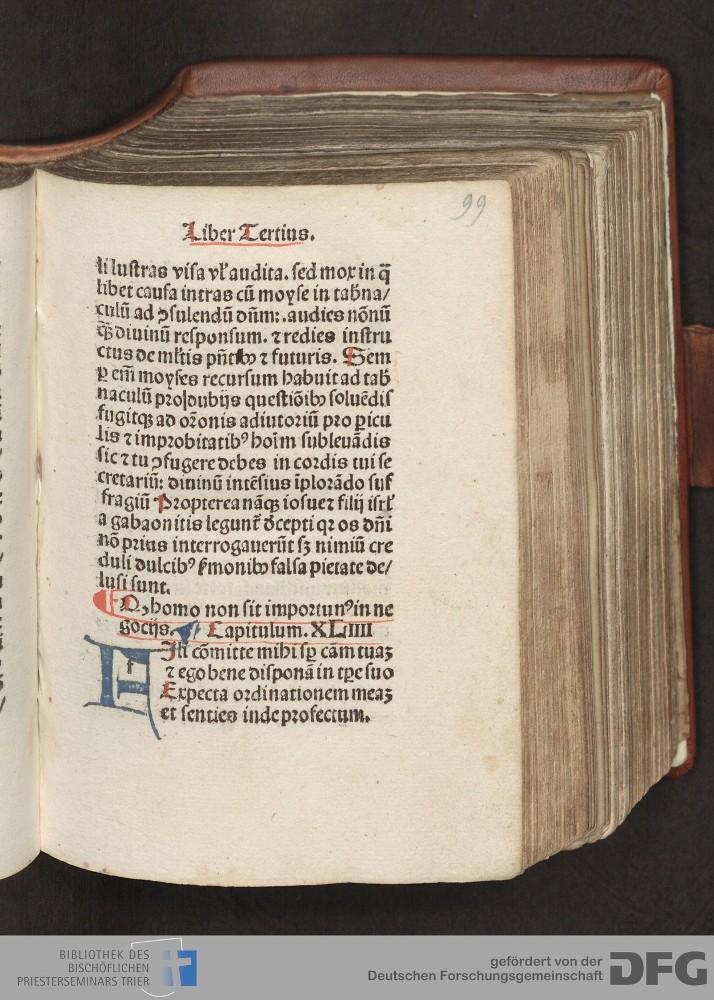 99
Liber Tertius.
li lustras visa vł audita. sed mox in q̄
libet causa intras cū moyse in tab̄na/
culū ad ꝯsulendū dn̄m: .audies nōnū
qꝫ diuinū responsum. ⁊ redies instru
ctus de ml̓tis pn̄tibꝰ ⁊ futuris. Sem
ꝑ em̄ moyses recursum habuit ad tab̄
naculū pro dubijs questiōibꝰ soluēdis
fugitqꝫ ad or̄onis adiutoriū pro ꝑicu
lis ⁊ improbitatibꝰ hoīm subleuādis
sic ⁊ tu ꝯfugere debes in cordis tui se
cretariū: diuinū intēsius īplorādo suf
fragiū Propterea nāqꝫ iosue ⁊ filij isrł
a gabaonitis legunt̄ decepti qꝛ os dn̄i
nō prius interrogauerūt sꝫ nimiū cre
duli dulcibꝰ sermonibꝰ falsa pietate de/
lusi sunt.
Qꝙ homo non sit importunꝰ in ne
gocijs. Capitulum. XLIIII
f Ili cōmitte mihi sꝑ cām tuaꝫ
⁊ ego bene disponā in tꝑe suo
Expecta ordinationem meaꝫ
et senties inde profectum.
BIBLIOTHEK DES
BISCHÖFLICHEN
PRIESTERSEMINARS TRIER
gefördert von der
Deutschen Forschungsgemeinschaft
DFG